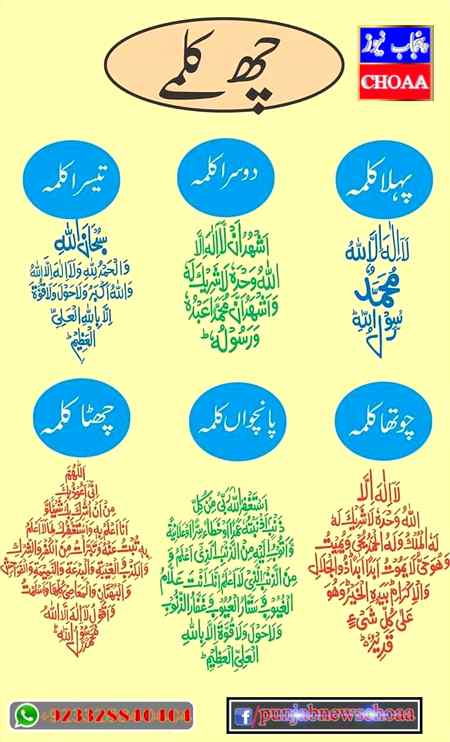 پنجاب نیوز
CHOAA
چھ کلمے
پہلا کلمہ
لَا اِلٰهَ اِلَّا اللهُ
مُحَمَّدٌ
رَّسُوْلُ اللهِ ط
دوسرا کلمہ
اَشْهَدُ اَنْ لَّا اِلٰهَ اِلَّا
اللهُ وَحْدَهٗ لَا شَرِيْكَ لَهٗ
وَاَشْهَدُ اَنَّ مُحَمَّدًا عَبْدُهٗ
وَرَسُوْلُهٗ ط
تیسرا کلمہ
سُبْحَانَ اللهِ
وَالْحَمْدُ لِلّٰهِ وَلَا اِلٰهَ اِلَّا اللهُ
وَاللهُ اَكْبَرُ وَلَا حَوْلَ وَلَا قُوَّةَ
اِلَّا بِاللهِ الْعَلِيِّ
الْعَظِيْمِ ط
چوتھا کلمہ
لَا اِلٰهَ اِلَّا
اللهُ وَحْدَهٗ لَا شَرِيْكَ لَهٗ
لَهُ الْمُلْكُ وَلَهُ الْحَمْدُ يُحْيِ وَيُمِيْتُ
وَهُوَ حَيٌّ لَّا يَمُوْتُ اَبَدًا اَبَدًا ذُو الْجَلَالِ
وَالْاِكْرَامِ بِيَدِهِ الْخَيْرُ وَهُوَ
عَلٰى كُلِّ شَيْءٍ
قَدِيْرٌ ط
پانچواں کلمہ
اَسْتَغْفِرُ اللهَ رَبِّيْ مِنْ كُلِّ
ذَنْبٍ اَذْنَبْتُهٗ عَمَدًا اَوْ خَطَاءً سِرًّا اَوْ عَلَانِيَةً
وَّاَتُوْبُ اِلَيْهِ مِنَ الذَّنْبِ الَّذِيْ اَعْلَمُ وَ
مِنَ الذَّنْبِ الَّذِيْ لَا اَعْلَمُ اِنَّكَ اَنْتَ عَلَّامُ
الْغُيُوْبِ وَ سَتَّارُ الْعُيُوْبِ وَ غَفَّارُ الذُّنُوْبِ
وَلَا حَوْلَ وَلَا قُوَّةَ اِلَّا بِاللهِ
الْعَلِيِّ الْعَظِيْمِ ط
چھٹا کلمہ
اَللّٰهُمَّ
اِنِّيْ اَعُوْذُ بِكَ
مِنْ اَنْ اُشْرِكَ بِكَ شَيْئًا وَّ
اَنَا اَعْلَمُ بِهٖ وَاَسْتَغْفِرُكَ لِمَا لَا اَعْلَمُ
بِهٖ تُبْتُ عَنْهُ وَتَبَرَّأْتُ مِنَ الْكُفْرِ وَالشِّرْكِ
وَالْكِذْبِ وَالْغِيْبَةِ وَالْبِدْعَةِ وَالنَّمِيْمَةِ وَالْفَوَاحِشِ
وَالْبُهْتَانِ وَالْمَعَاصِيْ كُلِّهَا وَاَسْلَمْتُ
وَاَقُوْلُ لَا اِلٰهَ اِلَّا اللهُ
مُحَمَّدٌ رَّسُوْلُ اللهِ ط
+923328840404
/punjabnewschoaa